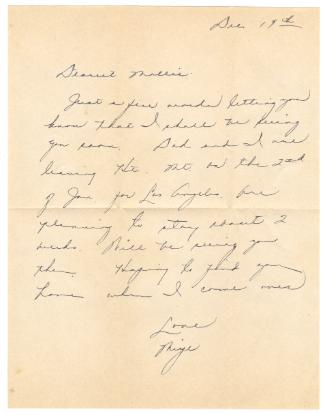 Dec 19th
Dearest Mollie
Just a few words letting you
know that I shall be seeing
you soon. Dad and I are
leaving Ht. Mt. on the 2nd
of Jan. for Los Angeles. are
planning to stay about 2
weeks. Will be seeing you
then. Hoping to find you
home when I come over
Love